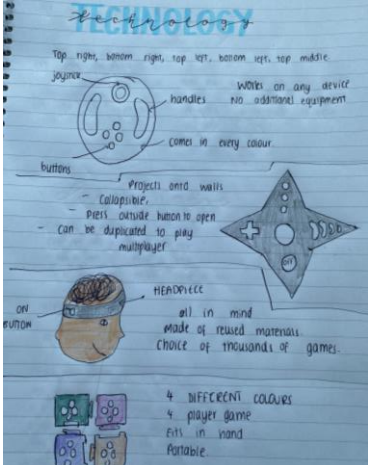 TECHNOLOGY
technology
Top right, bottom right, top left, bottom left, top middle
joystick
Works on any device
handles
No additional equipment
comes in every colour
buttons
Projects onto walls
- Collapsible.
- Press outside button to open
- Can be duplicated to play
multiplayer
Off
HEADPIECE
ON
BUTTON
all in mind
Made of reused materials.
Choice of thousands of games.
4 DIFFERENT COLOURS
4 player game
Fits in hand
Portable.